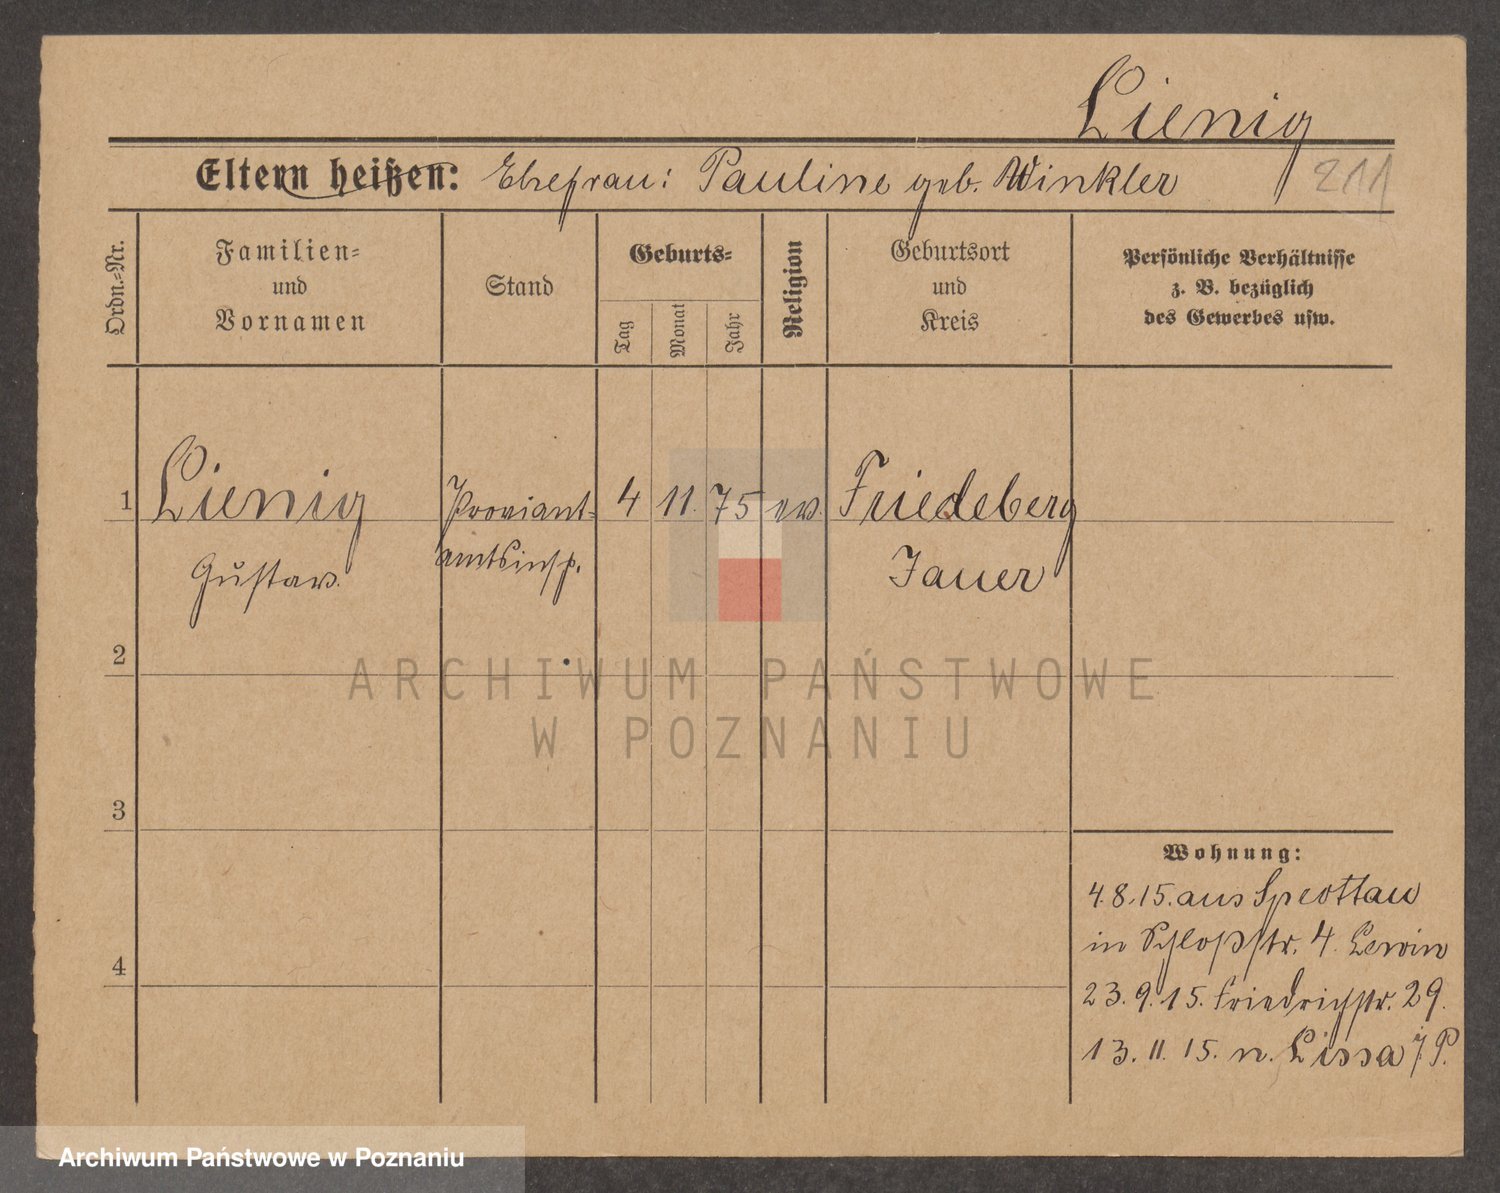 Lienig
Eltern heißen: Ehefrau: Pauline geb. Winkler 211
Ordn.-Nr.
Familien-
und
Vornamen
Stand
Geburts-
Tag
Monat
Jahr
Religion
Geburtsort
und
Kreis
Persönliche Verhältnisse
z. B. bezüglich
des Gewerbes usw.
1 Lienig Proviant- 4 11. 75 ev. Friedeberg
Gustav. amtsinsp. Jauer
2
3
4
Wohnung:
4.8.15. aus Sprottau
in Schloßstr. 4. Lewin
23.9.15. Friedrichstr. 29.
13.11.15. n. Lissa i. P.
ARCHIWUM PAŃSTWOWE
W POZNANIU
Archiwum Państwowe w Poznaniu